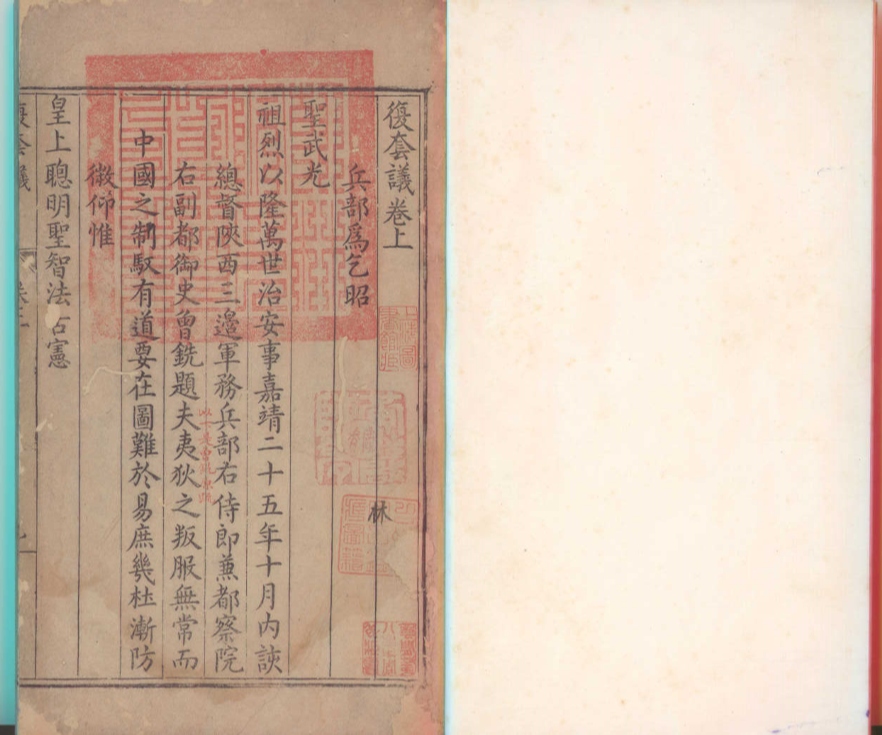 復套議卷上
兵部爲乞昭
聖武光
祖烈以隆萬世治安事嘉靖二十五年十月內該
總督陝西三邊軍務兵部右侍郎兼都察院
右副都御史曾銑題夫夷狄之叛服無常而
中國之制馭有道要在圖難於易庶幾杜漸防
微仰惟
皇上聰明聖智法古憲
復套議
林